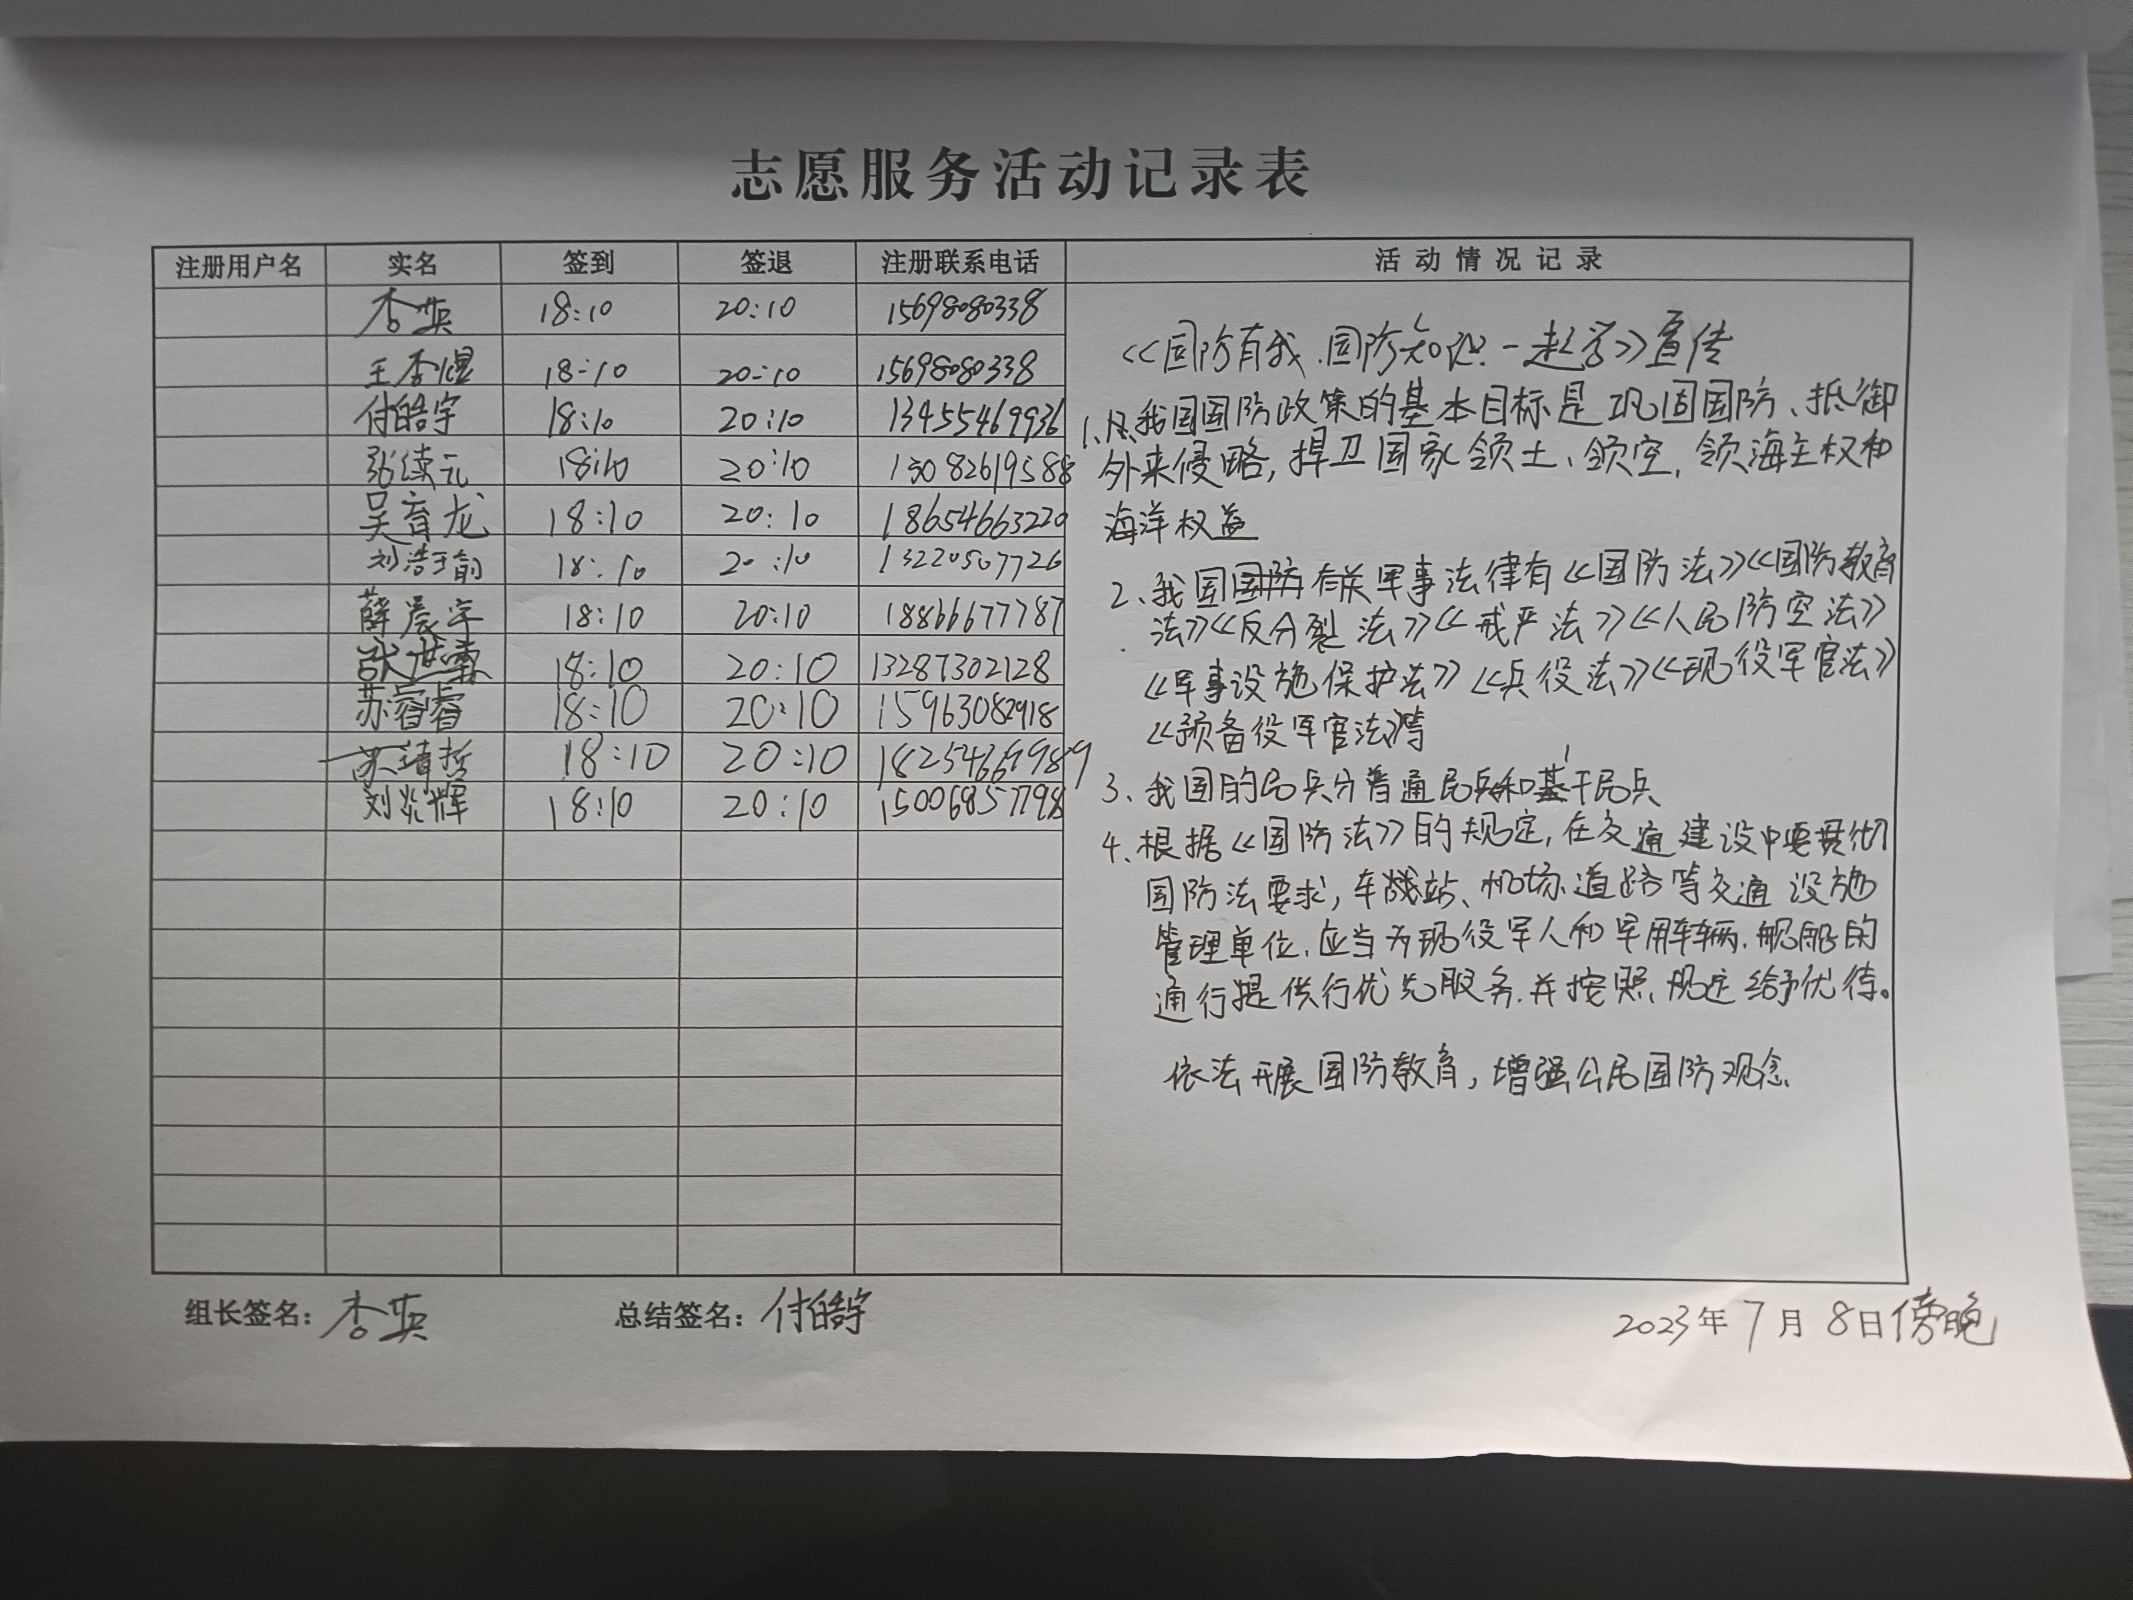 志愿服务活动记录表
注册用户名 实名 签到 签退 注册联系电话 活动情况记录
李英 18:10 20:10 15698080338
王李煜 18:10 20:10 15698080338
付皓宇 18:10 20:10 13455469936
张续元 18:10 20:10 13082619588
吴育龙 18:10 20:10 18654663220
刘浩 18:10 20:10 13220507726
薛晨宇 18:10 20:10 18866677787
张 18:10 20:10 13287302128
苏睿 18:10 20:10 15963082918
苏靖哲 18:10 20:10 18254669989
刘兆辉 18:10 20:10 15006857798
《国防有我、国防知识一起学》宣传
1、我国国防政策的基本目标是巩固国防、抵御
外来侵略,捍卫国家领土、领空,领海主权和
海洋权益
2、我国有关军事法律有《国防法》《国防教育
法》《反分裂法》《戒严法》《人民防空法》
《军事设施保护法》《兵役法》《现役军官法》
《预备役军官法》等
3、我国的民兵分普通民兵和基干民兵
4、根据《国防法》的规定,在交通建设中要贯彻
国防法要求,车站、机场、道路等交通设施
管理单位,应当为现役军人和军用车辆,舰船的
通行提供优先服务,并按照规定给予优待。
依法开展国防教育,增强公民国防观念
组长签名:李英 总结签名:付皓宇 2023年7月8日傍晚